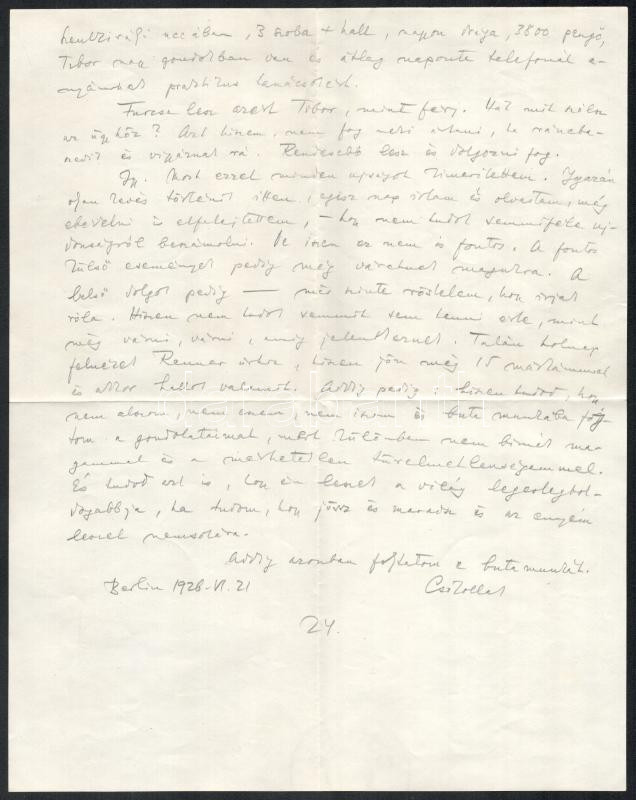 utcában, 3 szoba + hall, nagyon drága, 3800 pengő,
Tibor nagy gondokban van és átlag naponta telefonál a-
nyámnak praktikus tanácsokért.
Furcsa lesz azért Tibor, mint férj. Hát mit szólsz
az ügyhöz? Azt hiszem, nem fog neki ártani, ha ráncba-
szedik és vigyáznak rá. Rendesebb lesz és dolgozni fog.
Igy. Most ezzel minden ujságot kimeritettem. Igazán
olyan kevés történik itten, egész nap irtam és olvastam, még
ebédelni is elfelejtettem, – hogy nem tudok semmiféle uj-
donságról beszámolni. De hisz ez nem is fontos. A fontos
külső események pedig még váratnak magukra. A
belső dolgok pedig — már szinte röstelem, hogy irjak
róla. Hiszen nem tudok semmit sem tenni érte, mint
még várni, várni, amig jelentkeznek. Talán holnap
felnézek Renner úrhoz, hiszen jön még 15 márkámmal
és akkor hallok valamit. Addig pedig: hiszen tudod, hogy
nem alszom, nem eszem, nem iszom és buta munkába foj-
tom a gondolataimat, mert különben nem birnék ma-
gammal és a mérhetetlen türelmetlenségemmel.
És tudod azt is, hogy én leszek a világ legeslegbol-
dogabbja, ha tudom, hogy jössz és maradsz és az enyém
leszel
Addig azonban folytatom a buta munkát.
Berlin 1928. VI. 21
24.